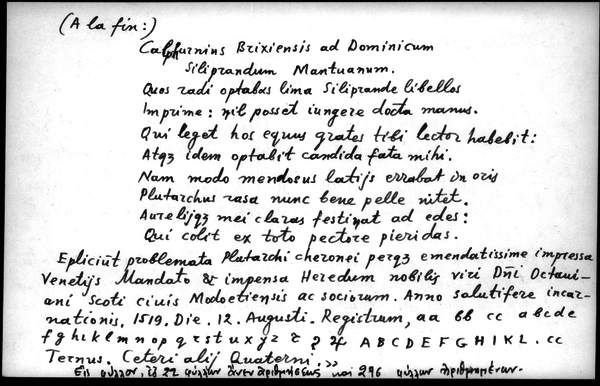 (A la fin:)
Calphurnius Brixiensis ad Dominicum
Siliprandum Mantuanum.
Quos radi optabas lima Siliprande libellos
Imprime: nil posset iungere docta manus.
Qui leget hos equus grates tibi lector habebit:
Atqȝ idem optabit candida fata mihi.
Nam modo mendosus latijs errabat in oris
Plutarchus rasa nunc bene pelle nitet.
Aurelijqȝ mei claras festinat ad edes:
Qui colit ex toto pectore pieridas.
Epliciūt problemata Plutarchi cheronei perqȝ emendatissime impressa
Venetijs Mandato & impensa Heredum nobilis viri Dñi Octaui-
ani Scoti ciuis Modoetiensis ac sociorum. Anno salutifere incar-
nationis. 1519. Die. 12. Augusti. Registrum, aa bb cc a b c d e
f g h i k l m n o p q r s t u x y z A B C D E F G H I K L . cc
Ternus. Ceteri alij Quaterni.»
Εἰς φύλλον, 22 φύλλων ἄνευ ἀριθμήσεως καὶ 296 φύλλων ἠριθμημένων.